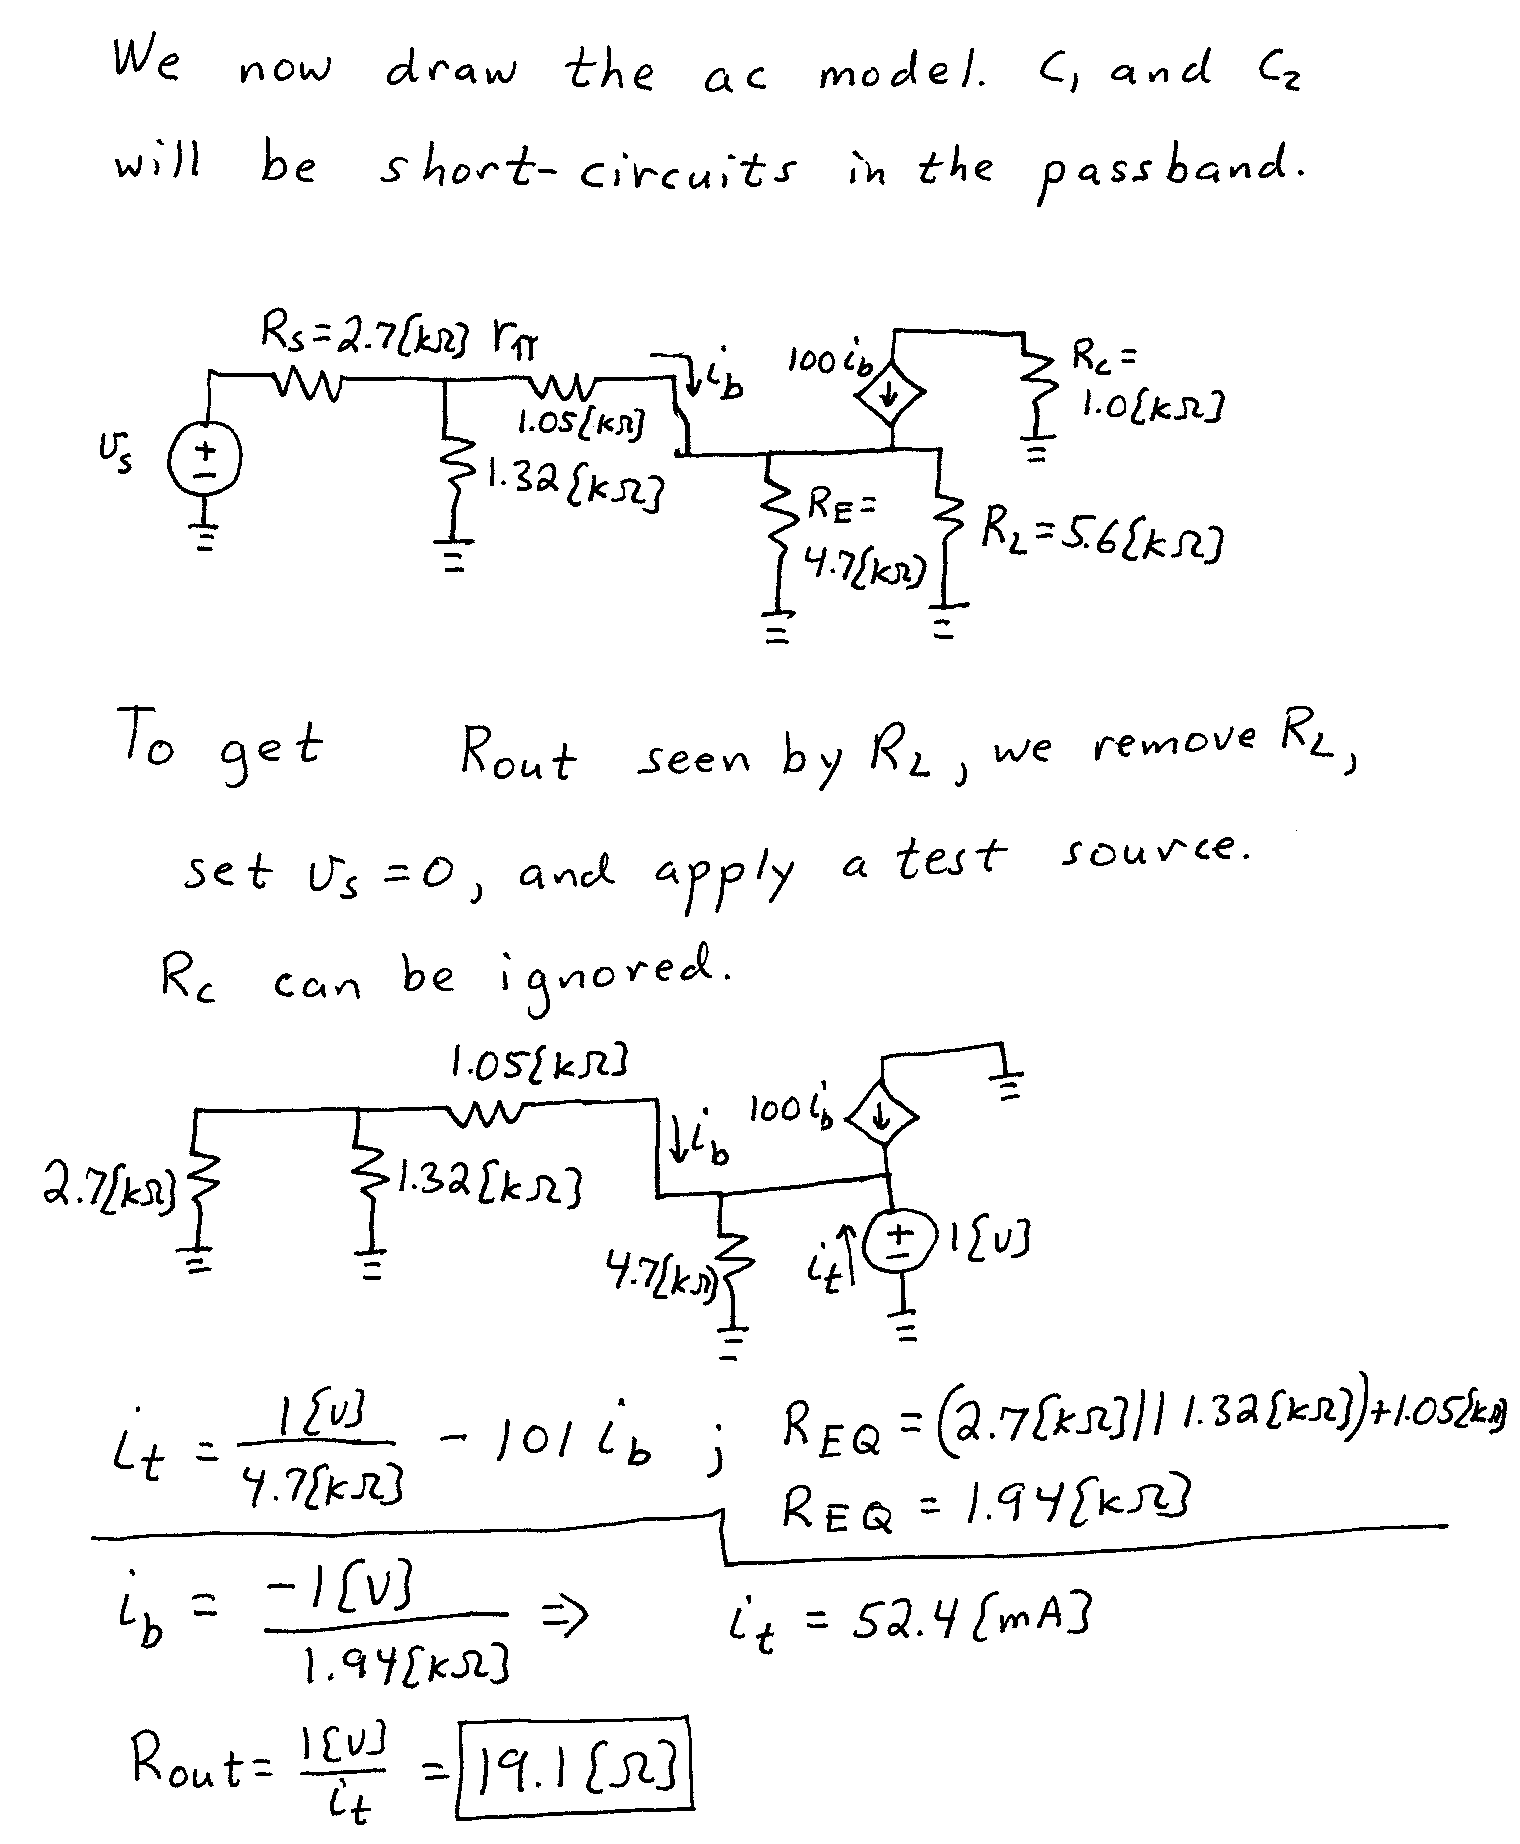 We now draw the ac model. C₁ and C₂
will be short-circuits in the passband.
Rs=2.7[kΩ] rπ
ib
100ib
Rc=
1.0[kΩ]
1.05[kΩ]
vs
+
−
1.32[kΩ]
RE=
4.7[kΩ]
RL=5.6[kΩ]
To get Rout seen by RL, we remove RL,
set vs=0, and apply a test source.
Rc can be ignored.
1.05[kΩ]
100ib
ib
2.7[kΩ]
1.32[kΩ]
4.7[kΩ]
it
+
−
1[V]
it = 1[V]/4.7[kΩ] - 101 ib ; REQ = (2.7[kΩ]||1.32[kΩ])+1.05[kΩ]
REQ = 1.94[kΩ]
ib = -1[V]/1.94[kΩ] ⇒ it = 52.4[mA]
Rout= 1[V]/it = 19.1[Ω]